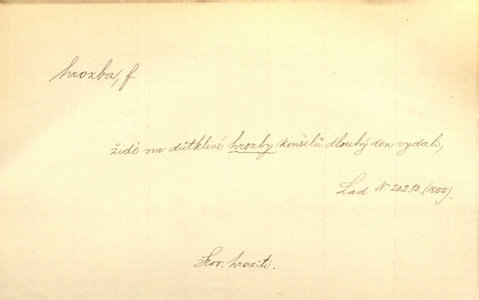 hrozba, f.
židé na důtklivé hrozby konšelů dlouhý den vydali,
Lad. N 202.B. (1855).
hroziti.